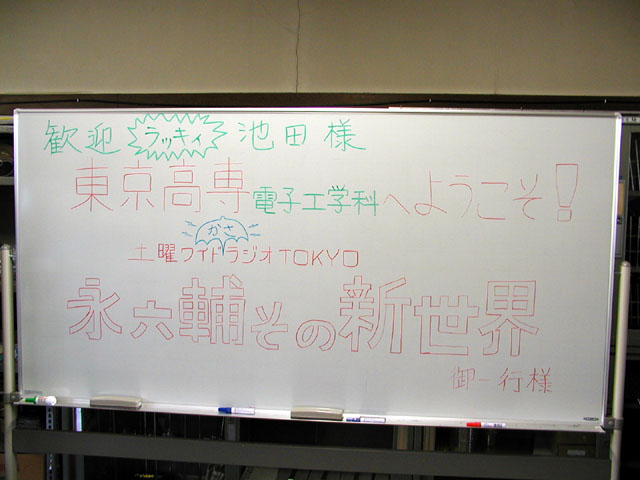 歓迎 ラッキィ 池田様
東京高専電子工学科へようこそ!
かさ
土曜ワイドラジオTOKYO
永六輔その新世界
御一行様